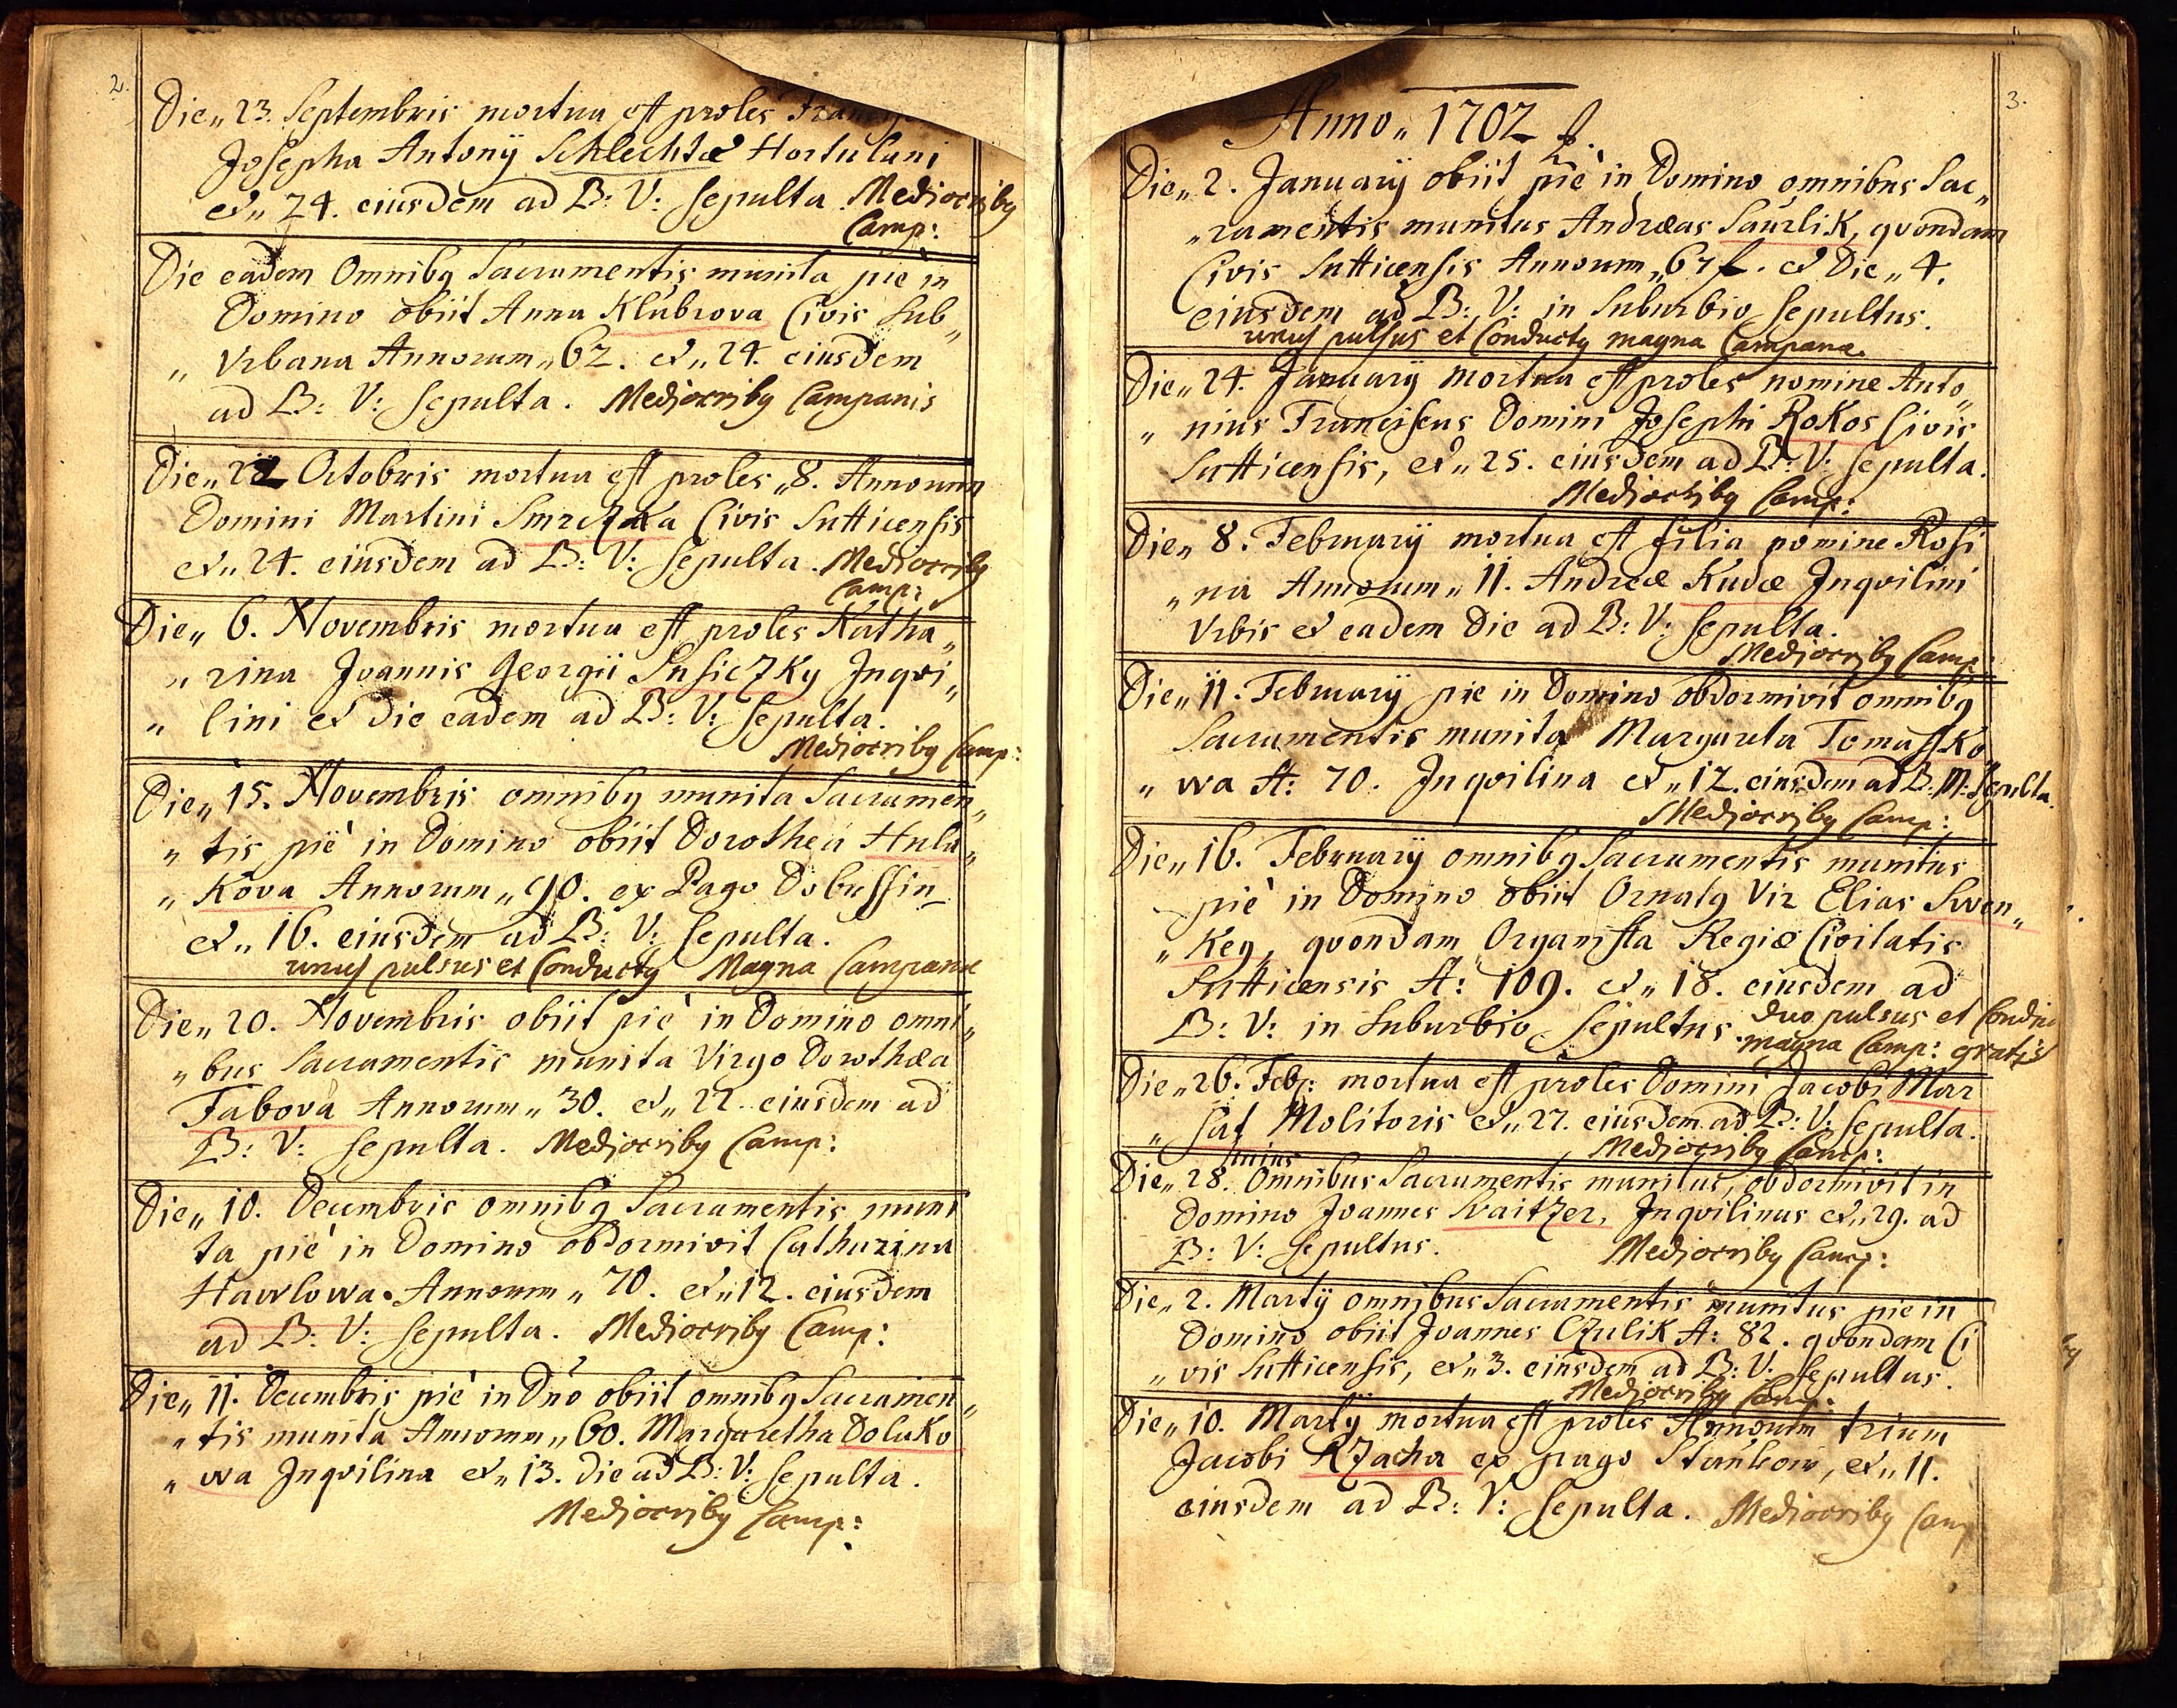 2.
Die„ 23. Septembris mortua est proles
Josepha Antonÿ Schlechtæ Hortulani
et„ 24. eiusdem ad B: V: sepulta Mediocribq
Camp:
Die eadem Omnibq Sacramentis munita pie in
Domino obiit Anna Klubrova Civis Sub„
„ Vrbana Annorum„ 62. et„ 24. eiusdem
ad B: V: sepulta. Mediocribq Campanis
Die„ Octobris mortua est proles „8. Annorum
Domini Martini Smrczka Civis Sutticensis
et„ 24. eiusdem ad B: V: sepulta. Mediocribq
Camp:
Die„ 6. Novembris mortua est proles Katha„
„ rina Joannis Georgii Susiczky Inqvi„
„ lini et die eadem ad B: V: sepulta.
Mediocribq Camp:
Die„ 15. Novembris omnibq munita Sacramen„
„ tis piè in Domino obiit Dorothea Hula„
„ Kova Annorum„ 90. ex Pago Dobussin
et„ 16. eiusdem ad B: V: sepulta.
unus pulsus et Conductq Magna Campana
Die„ 20. Novembris obiit piè in Domino omni„
„ bus Sacramentis munita Virgo Dorothæa
Fabova Annorum„ 30. et„ 22. eiusdem ad
B: V: sepulta. Mediocribq Camp:
Die„ 10. Decembris omnibq Sacramentis muni
ta piè in Domino obdormivit Catharina
Hawlowa. Annorum „ 70. et„ 12. eiusdem
ad B: V: sepulta. Mediocribq Camp:
Die„ 11. Decembris piè in Dno obiit omnibq Sacramen„
„ tis munita Annorum„ 60. Margaretha Doluko
„ wa Inqvilina et„ 13. die ad B: V: sepulta.
Mediocribq Camp:
3.
Anno„ 1702
Die„ 2. Januarÿ obiit piè in Domino omnibus Sac„
„ramentis munitus Andræas Saurlik, qvondam
Civis Sutticensis Annorum„ 67 et Die„ 4.
eiusdem ad B: V: in Suburbio sepultus.
unus pulsus et Conductq magna Campana.
Die„ 24. Januarÿ mortua est proles nomine Anto„
„ nius Franciscus Domini Josephi Rokos Civis
Sutticensis, et„ 25. eiusdem ad B: V: sepulta.
Mediocribq Camp:
Die„ 8. Februarÿ mortua est filia nomine Rosi
„na Annorum„ 11. Andreæ Kudæ Inqvilini
Vrbis et eadem Die ad B: V: sepulta.
Mediocribq Camp:
Die„ 11. Februarÿ pie in Domino obdormivit omnibq
Sacramentis munita Margareta Tomassko„
„ wa A: 70. Inqvilina et„ 12. eiusdem ad B: M: sepulta.
Mediocribq Camp:
Die„ 16. Februarÿ omnibq Sacramentis munitus
piè in Domino obiit Ornatq Vir Elias Swen„
„ Key, qvondam Organista Regiæ Civitatis
Sutticensis A: 109. et„ 18. eiusdem ad
B: V: in Suburbio sepultus. duo pulsus et
magna Camp: gratis
Die„ 26. Feb: mortua est proles Domini Jacobi Mar
„ sat Molitoris et„ 27. eiusdem ad B: V: sepulta.
Mediocribq Camp:
huius
Die„ 28. Omnibus Sacramentis munitus, obdormivit in
Domino Joannes Svaitzer, Inqvilinus et„ 29. ad
B: V: sepultus. Mediocribq Camp:
Die„ 2. Martÿ omnibus Sacramentis munitus pie in
Domino obiit Joannes Czulik A: 82. qvondam Ci
„ vis Sutticensis, et„ 3. eiusdem ad B: V: sepultus.
Mediocribq Camp:
Die„ 10. Martÿ mortua est proles Annorum trium
Jacobi Rzacha ex pago Stankow, et„ 11.
eiusdem ad B: V: sepulta. Mediocribq Camp